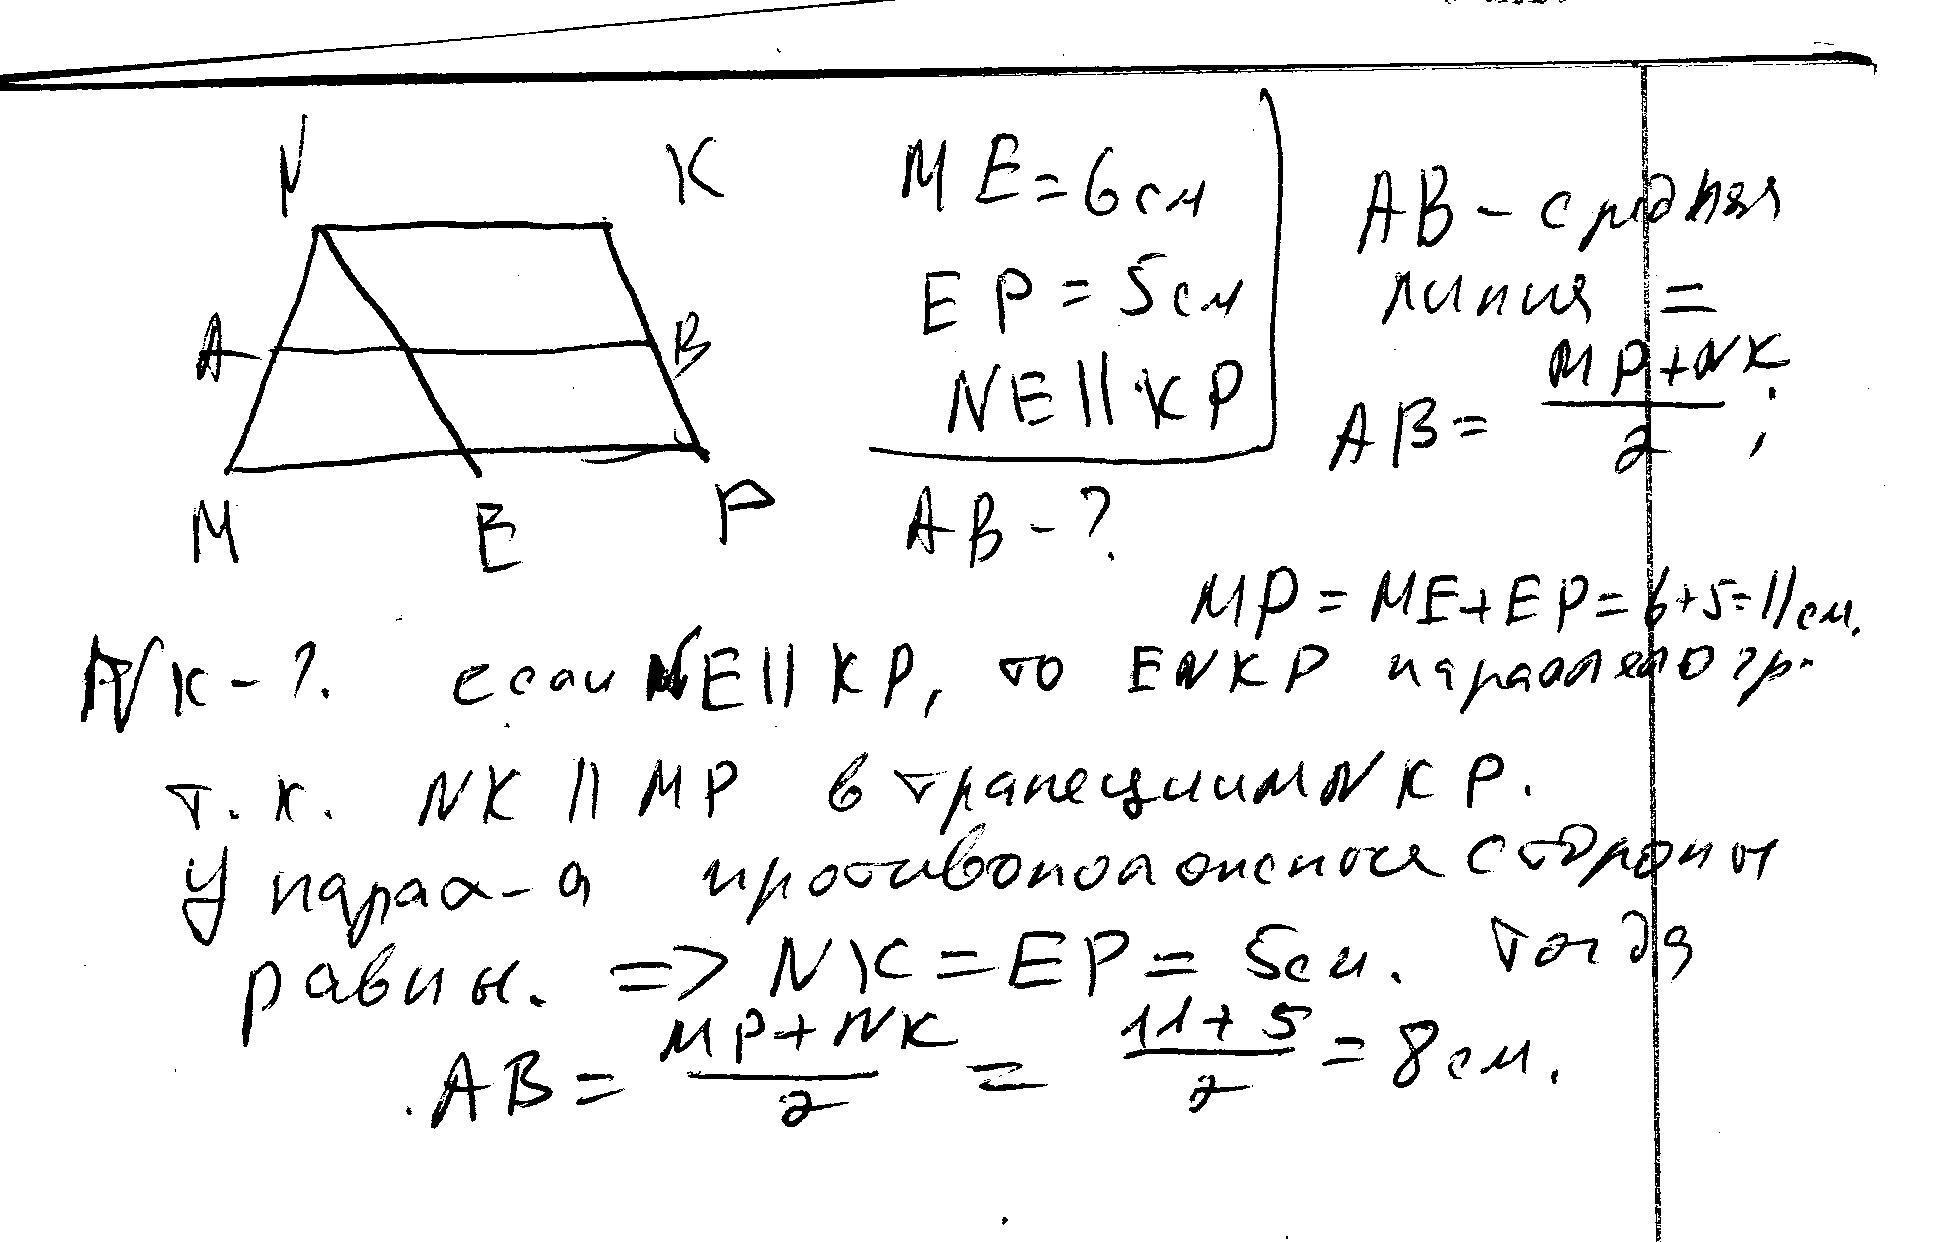 N K
A B
M E P
ME = 6 см
EP = 5 см
NE || KP
AB - ?
AB - средняя
линия =
AB = MP + NK / 2 ;
MP = ME + EP = 6 + 5 = 11 см.
NK - ?. если NE || KP, то ENKP параллелогр.
т.к. NK || MP в трапеции MNKP.
У парал-а противоположные стороны
равны. => NK = EP = 5 см. тогда
AB = MP + NK / 2 = 11 + 5 / 2 = 8 см.